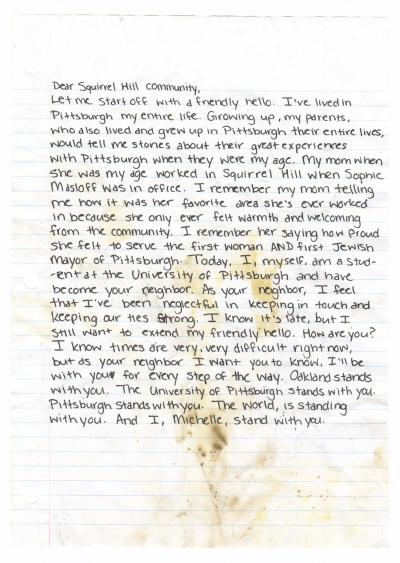 Dear Squirrel Hill community,
Let me start off with a friendly hello. I've lived in
Pittsburgh my entire life. Growing up, my parents,
who also lived and grew up in Pittsburgh their entire lives,
would tell me stories about their great experiences
with Pittsburgh when they were my age. My mom when
she was my age worked in Squirrel Hill when Sophie
Masloff was in office. I remember my mom telling
me how it was her favorite area she's ever worked
in because she only ever felt warmth and welcoming
from the community. I remember her saying how proud
she felt to serve the first woman AND first Jewish
Mayor of Pittsburgh. Today, I, myself, am a stud-
-ent at the University of Pittsburgh and have
become your neighbor. As your neighbor, I feel
that I've been neglectful in keeping in touch and
keeping our ties strong. I know it's late, but I
still want to extend my friendly hello. How are you?
I know times are very, very difficult right now,
but as your neighbor I want you to know, I'll be
with you for every step of the way. Oakland stands
with you. The University of Pittsburgh stands with you.
Pittsburgh stands with you. The world, is standing
with you. And I, Michelle, stand with you.